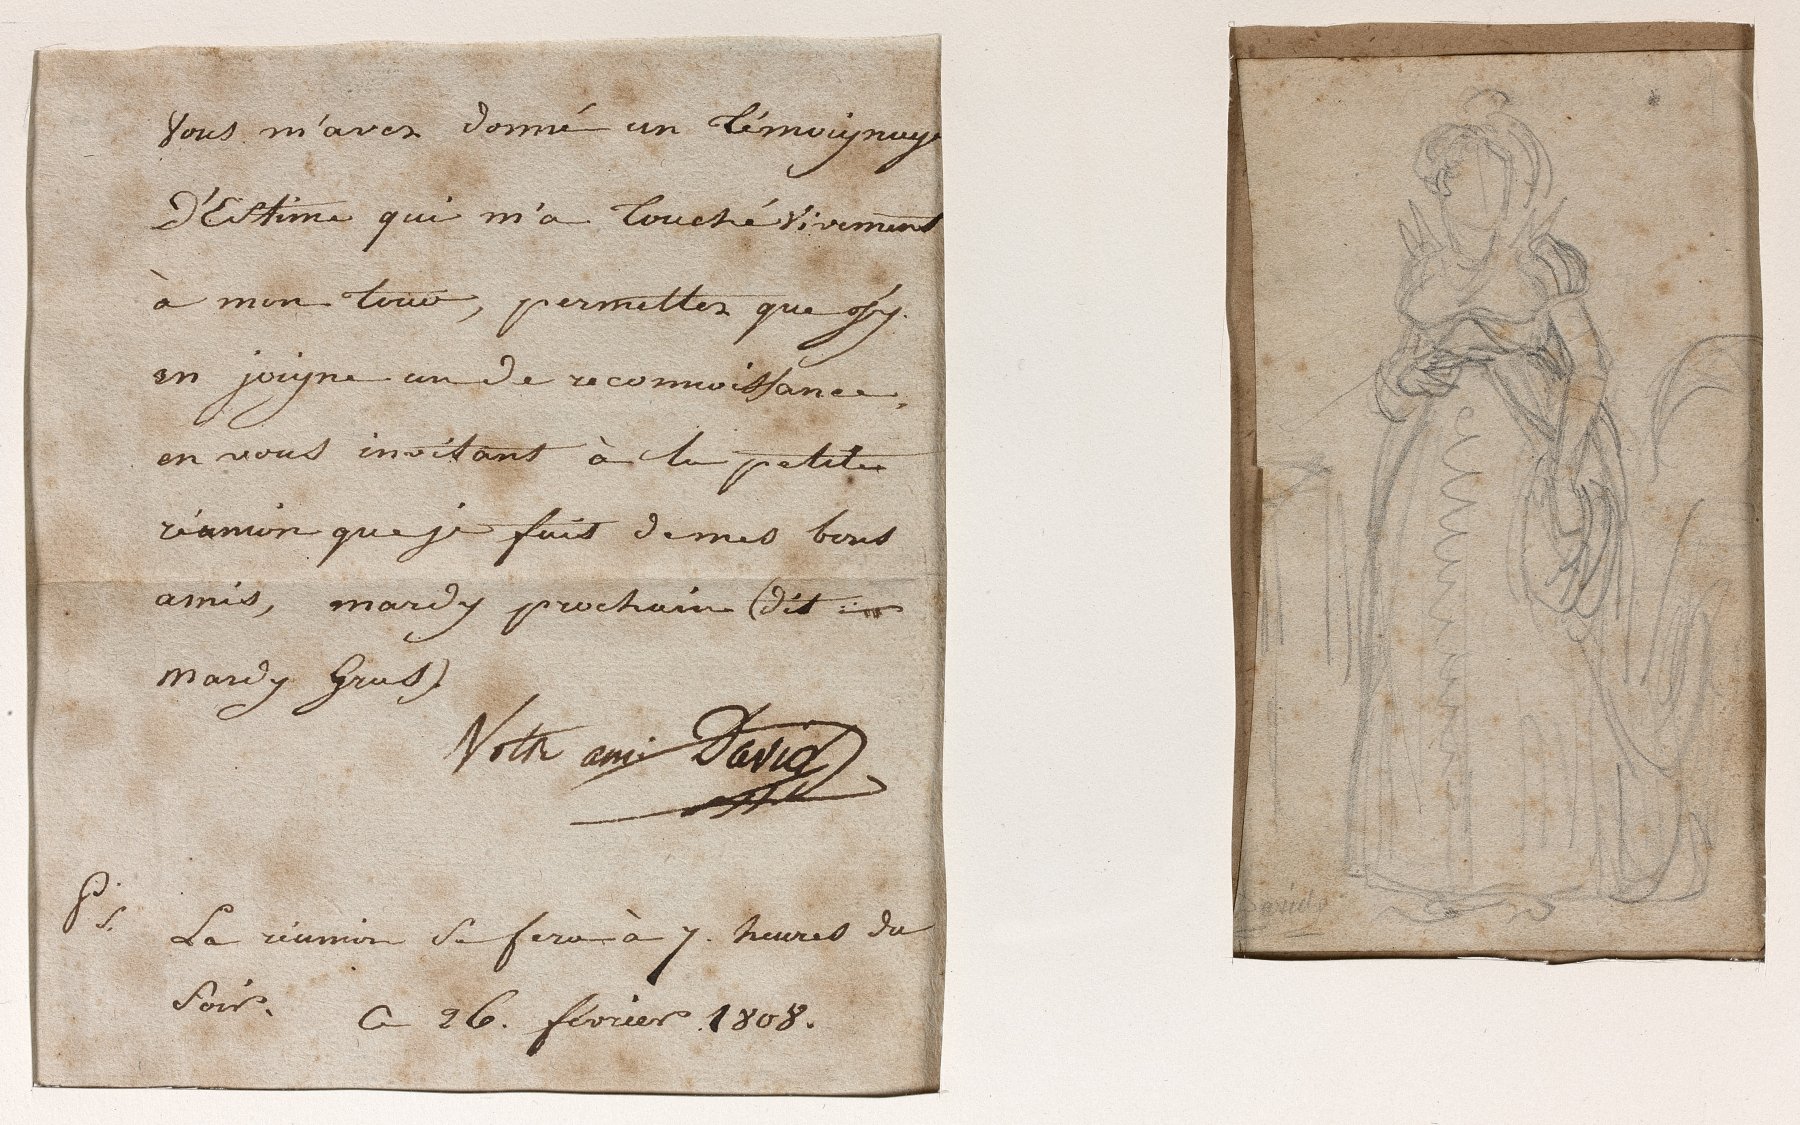 Vous m'avez donné un témoignage
D'Estime qui m'a touché Vivement
à mon tour, permettez que j'y
en joigne un de reconnoissance,
en vous invitant à la petite
réunion que je fais de mes bons
amis, mardy prochain (dit
mardy Gras)
Votre ami David
Ps. La réunion se fera à 7. heures du
Soir.
Ce 26. février 1808.
David